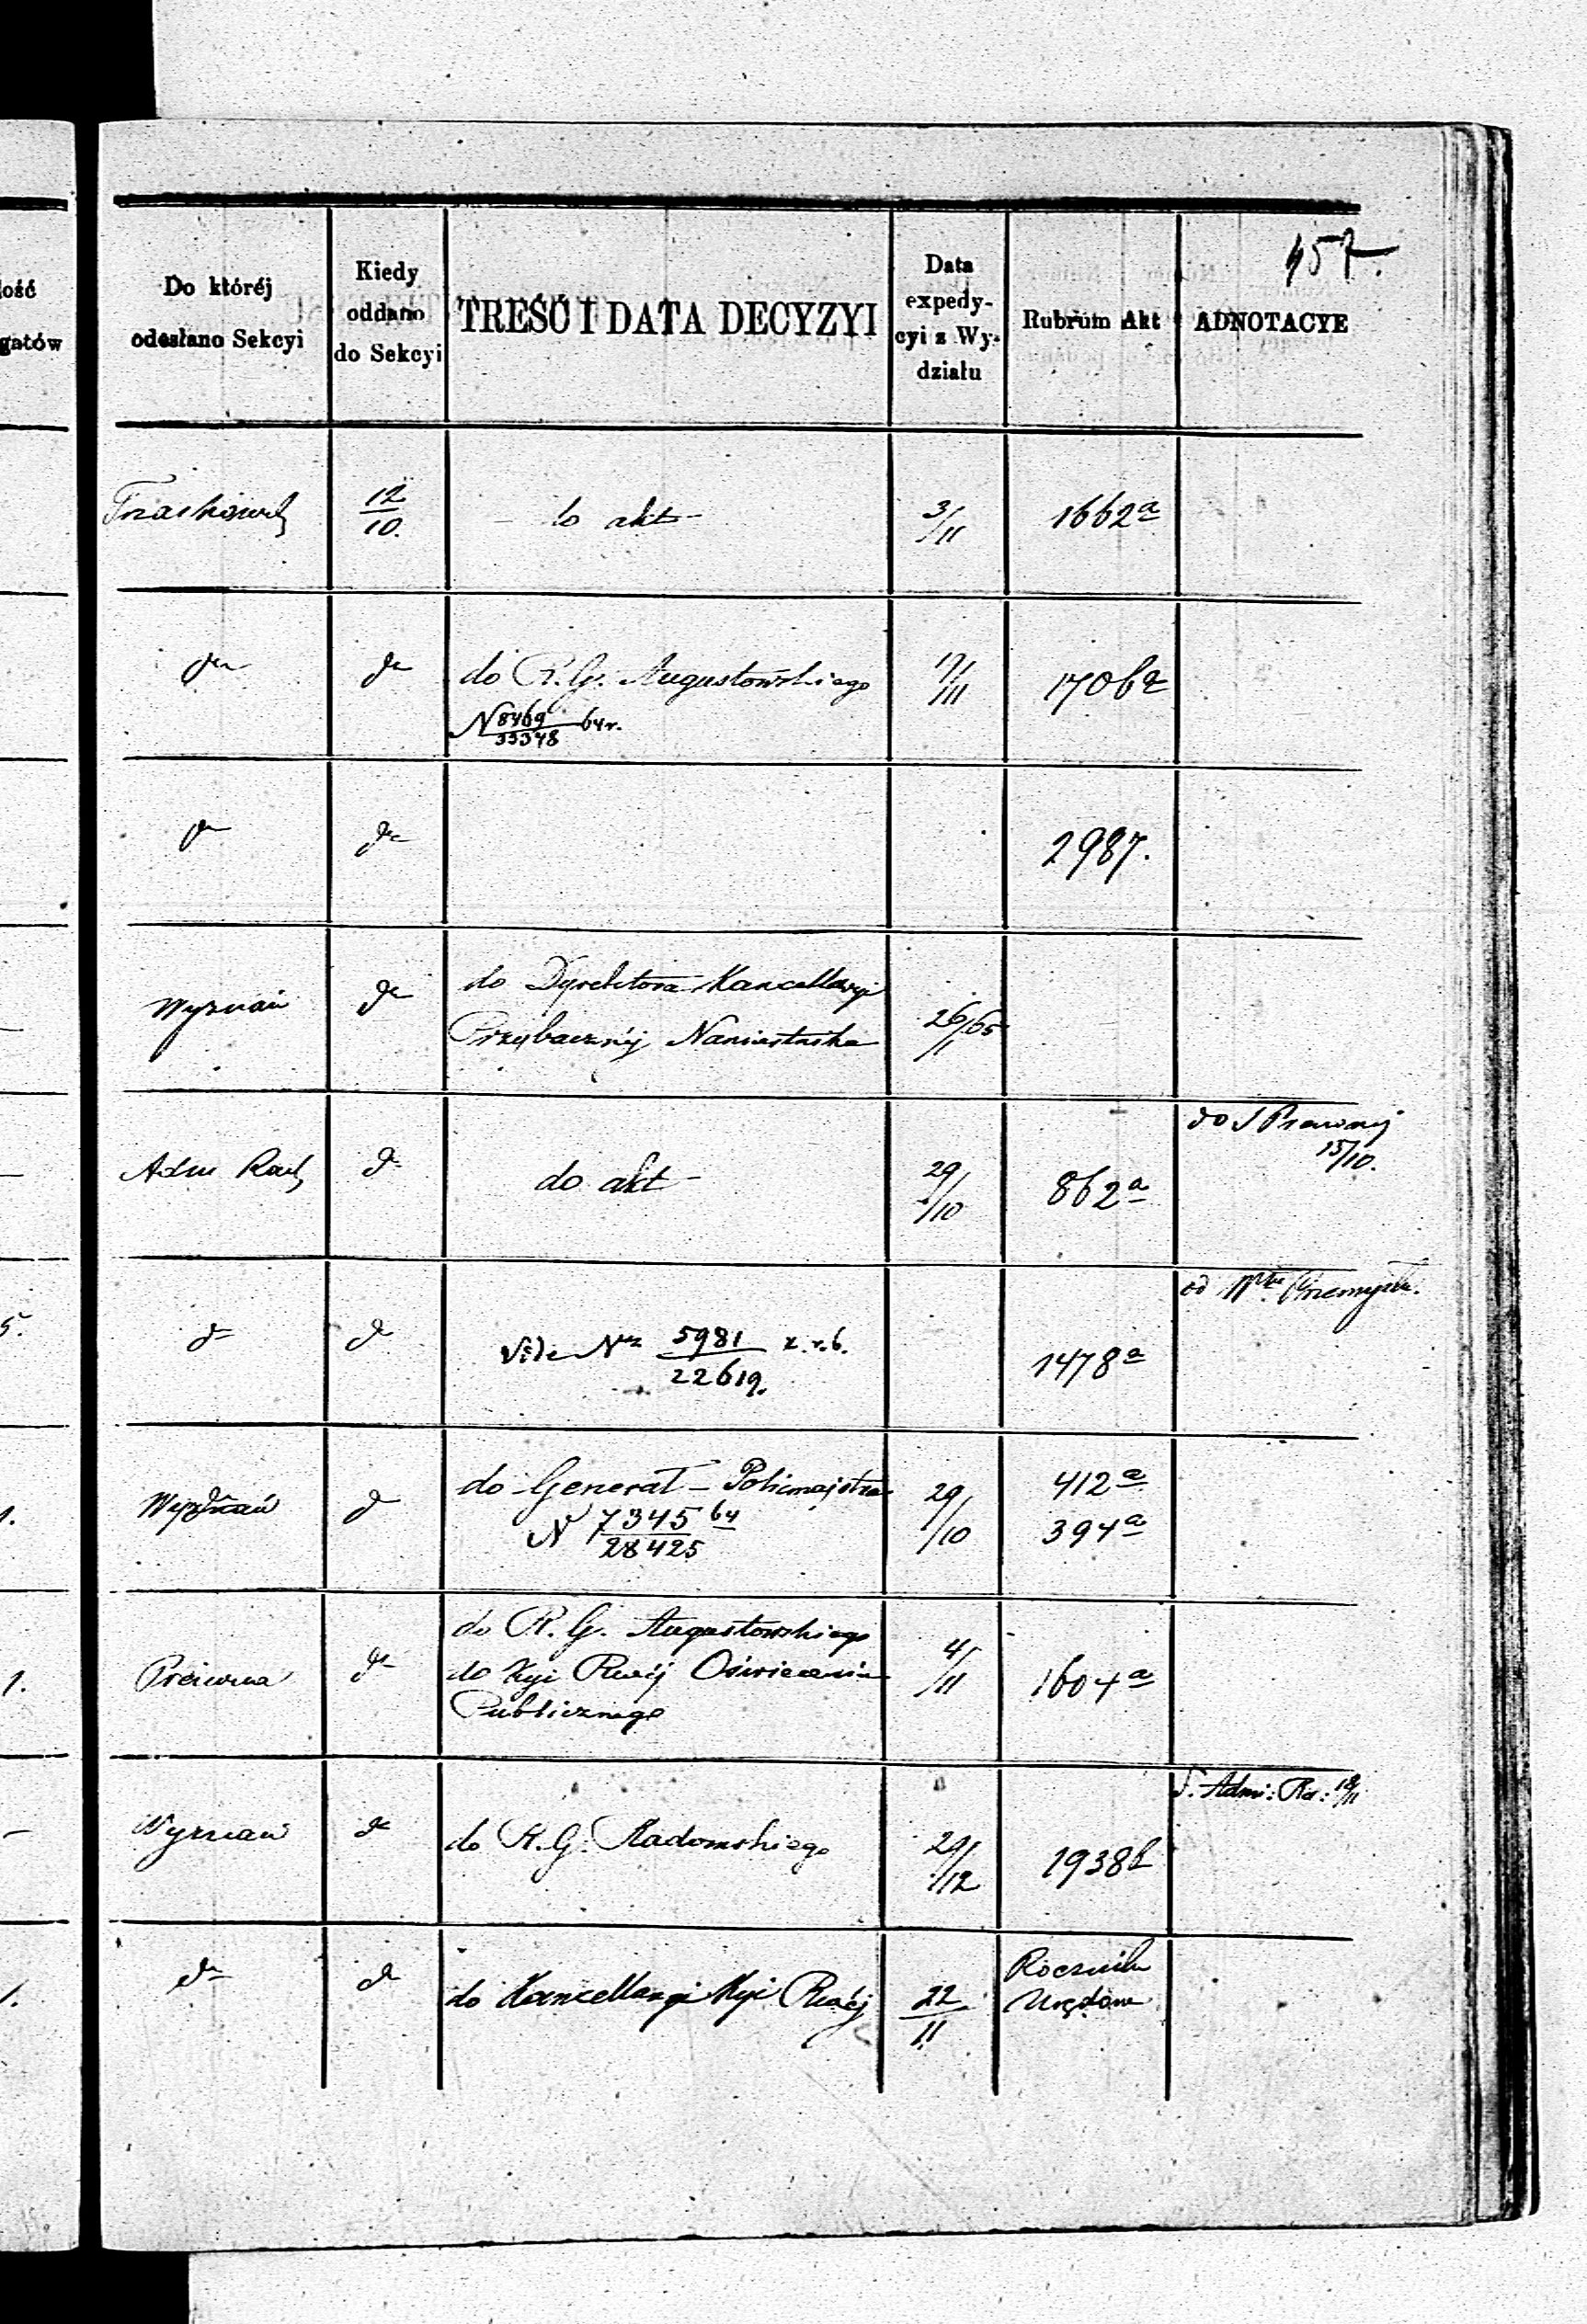 457.
ość
gatów
Do któréj
odesłano Sekcyi
Kiedy
oddano
do Sekcyi
TREŚĆ I DATA DECYZYI
Data
expedy-
cyi z Wy-
działu
Rubrum Akt
ADNOTACYE
12/10.
do akt
3/11
1662a
do
do
do R. G. Augustowskiego
N 8469/33348 64 r.
17/11
1706a
do
do
2987.
Wyznań
do
do Dyrektora Kancellaryi
Przybocznéj Namiestnika
26/1 65
Adm Rad
do
do akt
29/10
862a
do S Prawnéj
15/10.
5.
do
do
Vide Nr 5981/22619. z. r. b.
1478a
od
1.
Wyznań
do
do Generał-Policmajstra
N 7345/28425 64
29/10
412a
394a
1.
Prawna
do
do R. G. Augustowskiego
do Kyi Rwéj Oświecenia
Publicznego
4/11
1604a
Wyznań
do
do R. G. Radomskiego
29/12
1938b
S. Adm: Ra: 18/11
1.
do
do
do Kancellaryi Kyi Rwéj
22/11
Roczniki
Urzędowe